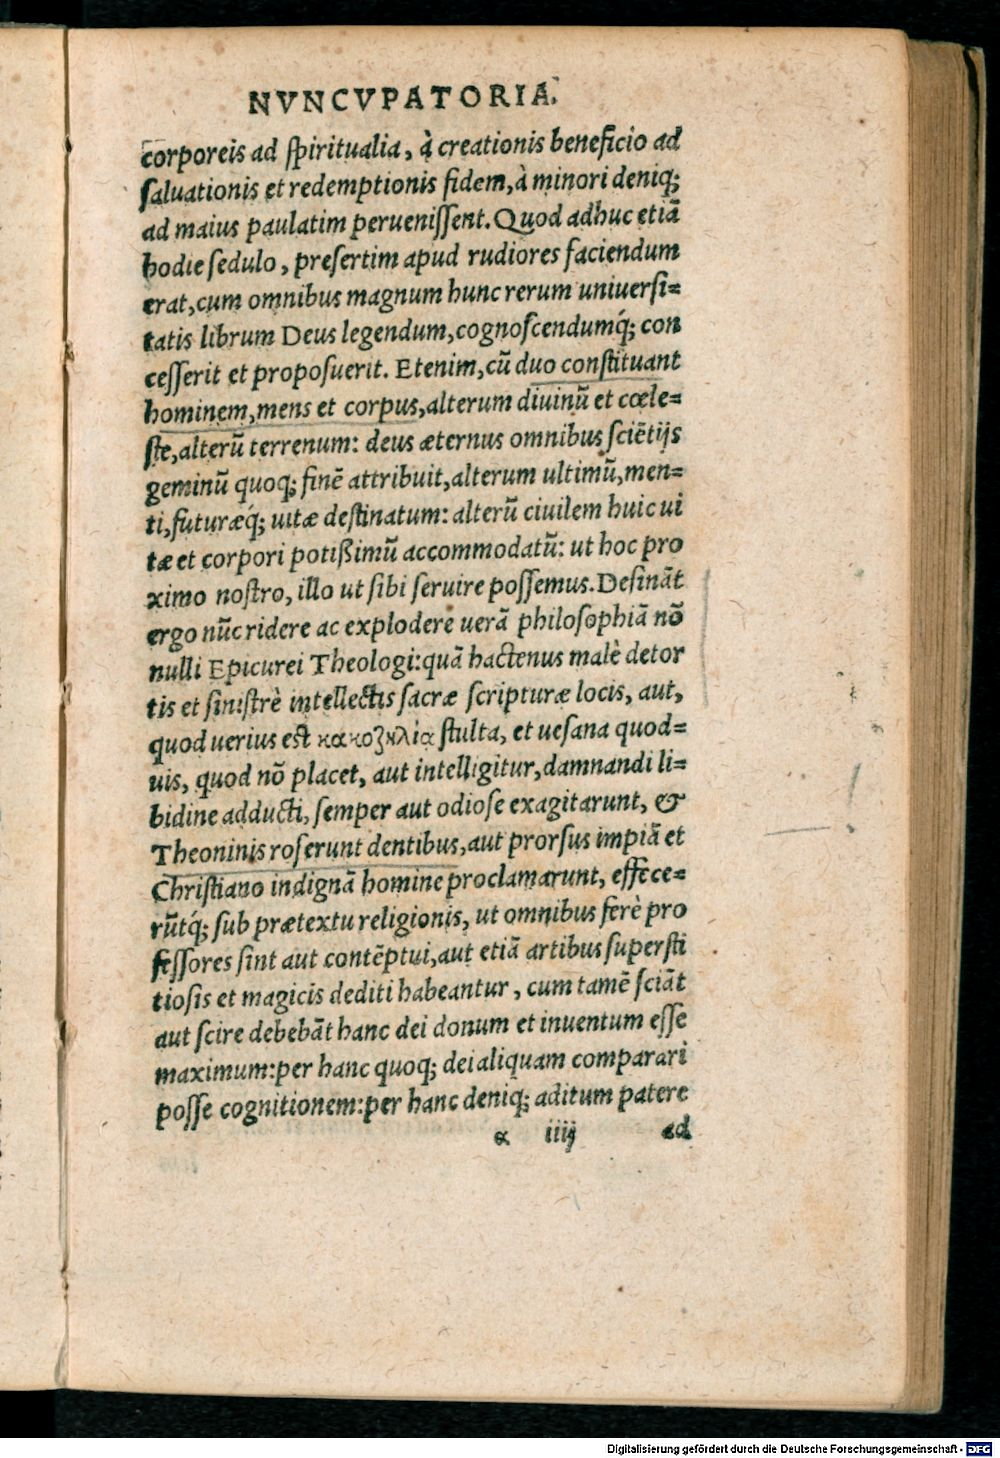 NVNCVPATORIA.
corporeis ad spiritualia, à creationis beneficio ad
saluationis et redemptionis fidem, à minori deniq;
ad maius paulatim peruenissent. Quod adhuc etiā
hodie sedulo, presertim apud rudiores faciendum
erat, cum omnibus magnum hunc rerum uniuersi=
tatis librum Deus legendum, cognoscendumq́; con
cesserit et proposuerit. Etenim, cū duo constituant
hominem, mens et corpus, alterum diuinū et cœle=
ste, alterū terrenum: deus æternus omnibus sciētijs
geminū quoq; finē attribuit, alterum ultimū, men=
ti, futuræq́; uitæ destinatum: alterū ciuilem huic ui
tæ et corpori potißimū accommodatū: ut hoc pro
ximo nostro, illo ut sibi seruire possemus. Desināt
ergo nūc ridere ac explodere uerā philosophiā nō
nulli Epicurei Theologi: quā hactenus malè detor
tis et sinistrè intellectis sacræ scripturæ locis, aut,
quod uerius est κακοζηλία stulta, et uesana quod=
uis, quod nō placet, aut intelligitur, damnandi li=
bidine adducti, semper aut odiose exagitarunt, &
Theoninis roserunt dentibus, aut prorsus impiā et
Christiano indignā homine proclamarunt, effece=
rūtq́; sub prætextu religionis, ut omnibus ferè pro
fessores sint aut contēptui, aut etiā artibus supersti
tiosis et magicis dediti habeantur, cum tamē sciāt
aut scire debebāt hanc dei donum et inuentum esse
maximum: per hanc quoq; dei aliquam comparari
posse cognitionem: per hanc deniq; aditum patere
α iiij ad
Digitalisierung gefördert durch die Deutsche Forschungsgemeinschaft - DFG